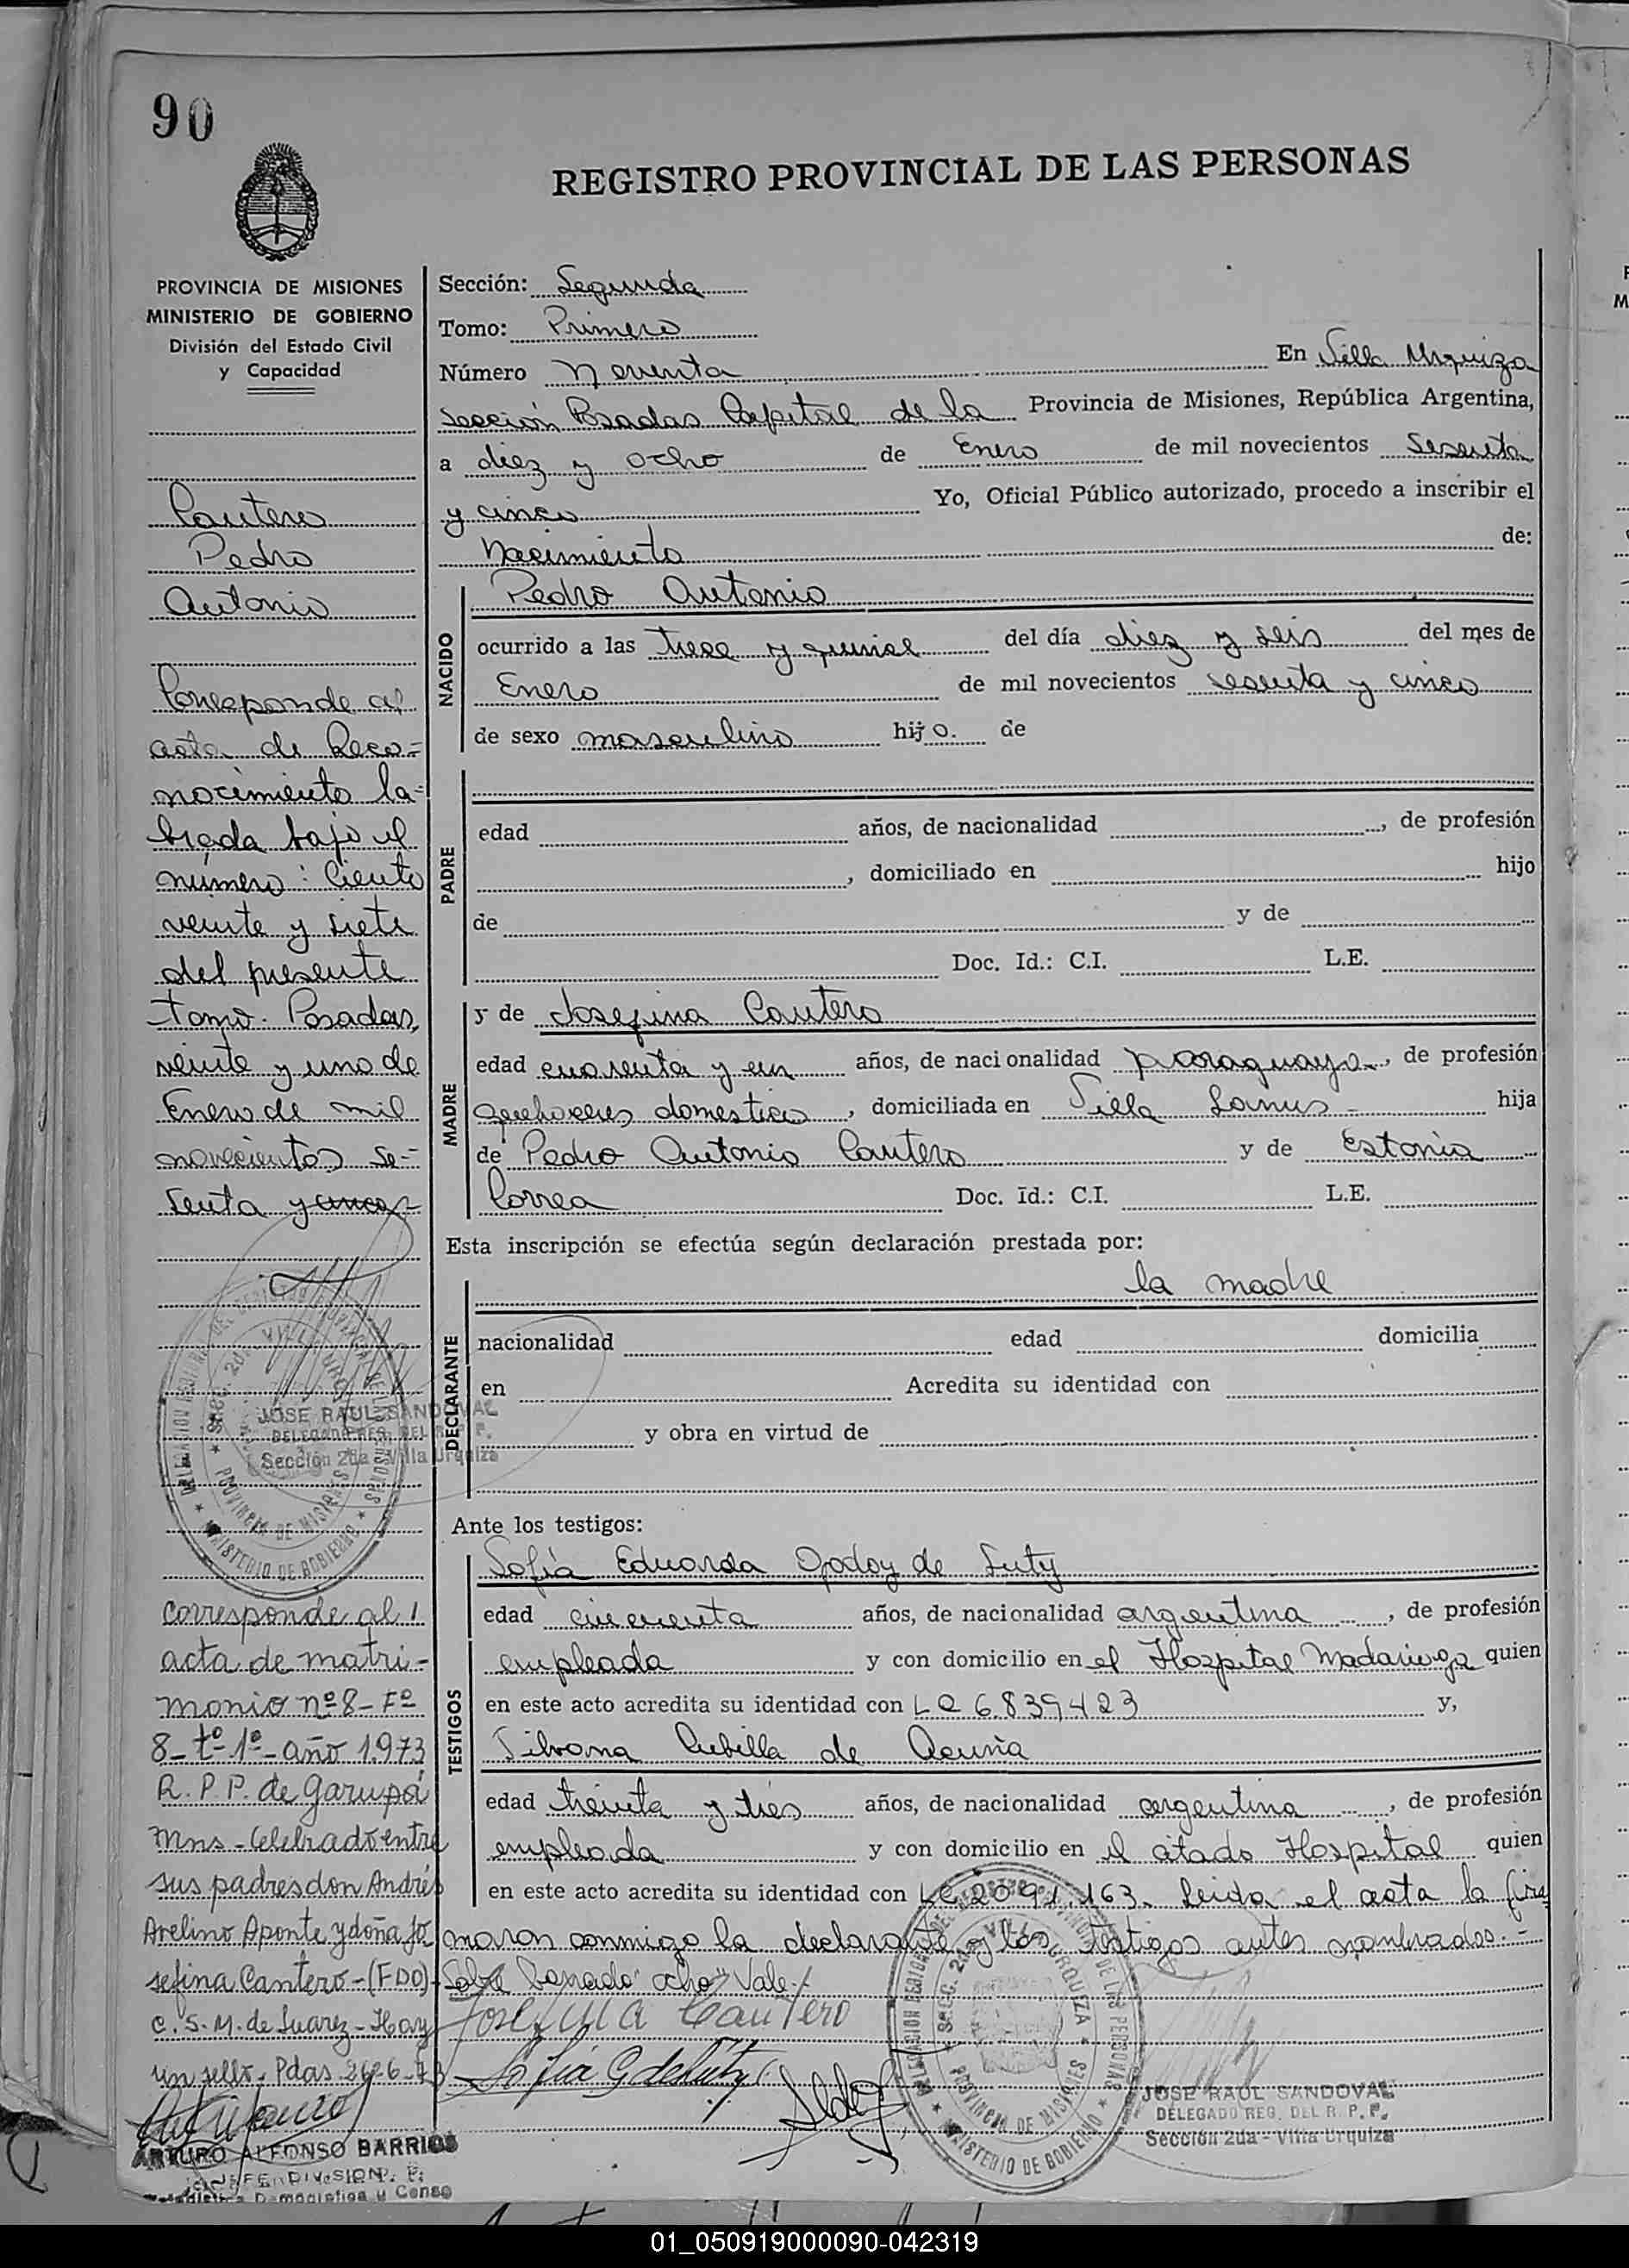 90
REGISTRO PROVINCIAL DE LAS PERSONAS
PROVINCIA DE MISIONES
MINISTERIO DE GOBIERNO
División del Estado Civil
y Capacidad
Cantero
Pedro
Antonio
Corresponde al
acta de Reco-
nocimiento la-
brada bajo el
número: Ciento
veinte y siete
del presente
tomo. Posadas,
veinte y uno de
Enero de mil
novecientos se-
senta y cinco-
JOSE RAUL SANDOVAL
DELEGADO REG. DEL R. P. P.
Sección 2da - Villa Urquiza
corresponde al
acta de matri-
monio nº 8- Fº
8- tº 1º- año 1973
R. P. P. de Garupá
Mns- Celebrado entre
sus padres don Andrés
Avelino Aponte y doña Jo
sefina Cantero-(FDO)-
C. S. M. de Suarez- Hay
un sello. Pdas. 26-6-73
ARTURO ALFONSO BARRIOS
JEFE DIVISION
Demográfica y Censo
Sección: Segunda
Tomo: Primero
Número Noventa En Villa Urquiza
sección Posadas Capital de la Provincia de Misiones, República Argentina,
a diez y ocho de Enero de mil novecientos Sesenta
y cinco Yo, Oficial Público autorizado, procedo a inscribir el
Nacimiento de:
NACIDO
Pedro Antonio
ocurrido a las trece y quince del día diez y seis del mes de
Enero de mil novecientos sesenta y cinco
de sexo masculino hijo. de
PADRE
edad años, de nacionalidad , de profesión
, domiciliado en hijo
de y de
Doc. Id.: C.I. L.E.
MADRE
y de Josefina Cantero
edad cuarenta y un años, de nacionalidad paraguaya, de profesión
quehaceres domesticos, domiciliada en Villa Lanus hija
de Pedro Antonio Cantero y de Estonia
Correa Doc. Id.: C.I. L.E.
Esta inscripción se efectúa según declaración prestada por:
la madre
DECLARANTE
nacionalidad edad domicilia
en Acredita su identidad con
y obra en virtud de
Ante los testigos:
TESTIGOS
Sofía Eduarda Godoy de Luty
edad cincuenta años, de nacionalidad argentina, de profesión
empleada y con domicilio en el Hospital Madariaga quien
en este acto acredita su identidad con LC 6.839423 y,
Silvana Cubilla de Acuña
edad treinta y tres años, de nacionalidad argentina, de profesión
empleada y con domicilio en el citado Hospital quien
en este acto acredita su identidad con LC. 2091.163. Leída el acta la fir
maron conmigo la declarante y los testigos antes nombrados.-
Sobre borrado "ocho" Vale.-
Josefina Cantero
Sofia G de Luty
JOSE RAUL SANDOVAL
DELEGADO REG. DEL R. P. P.
Sección 2da - Villa Urquiza
01_050919000090-042319